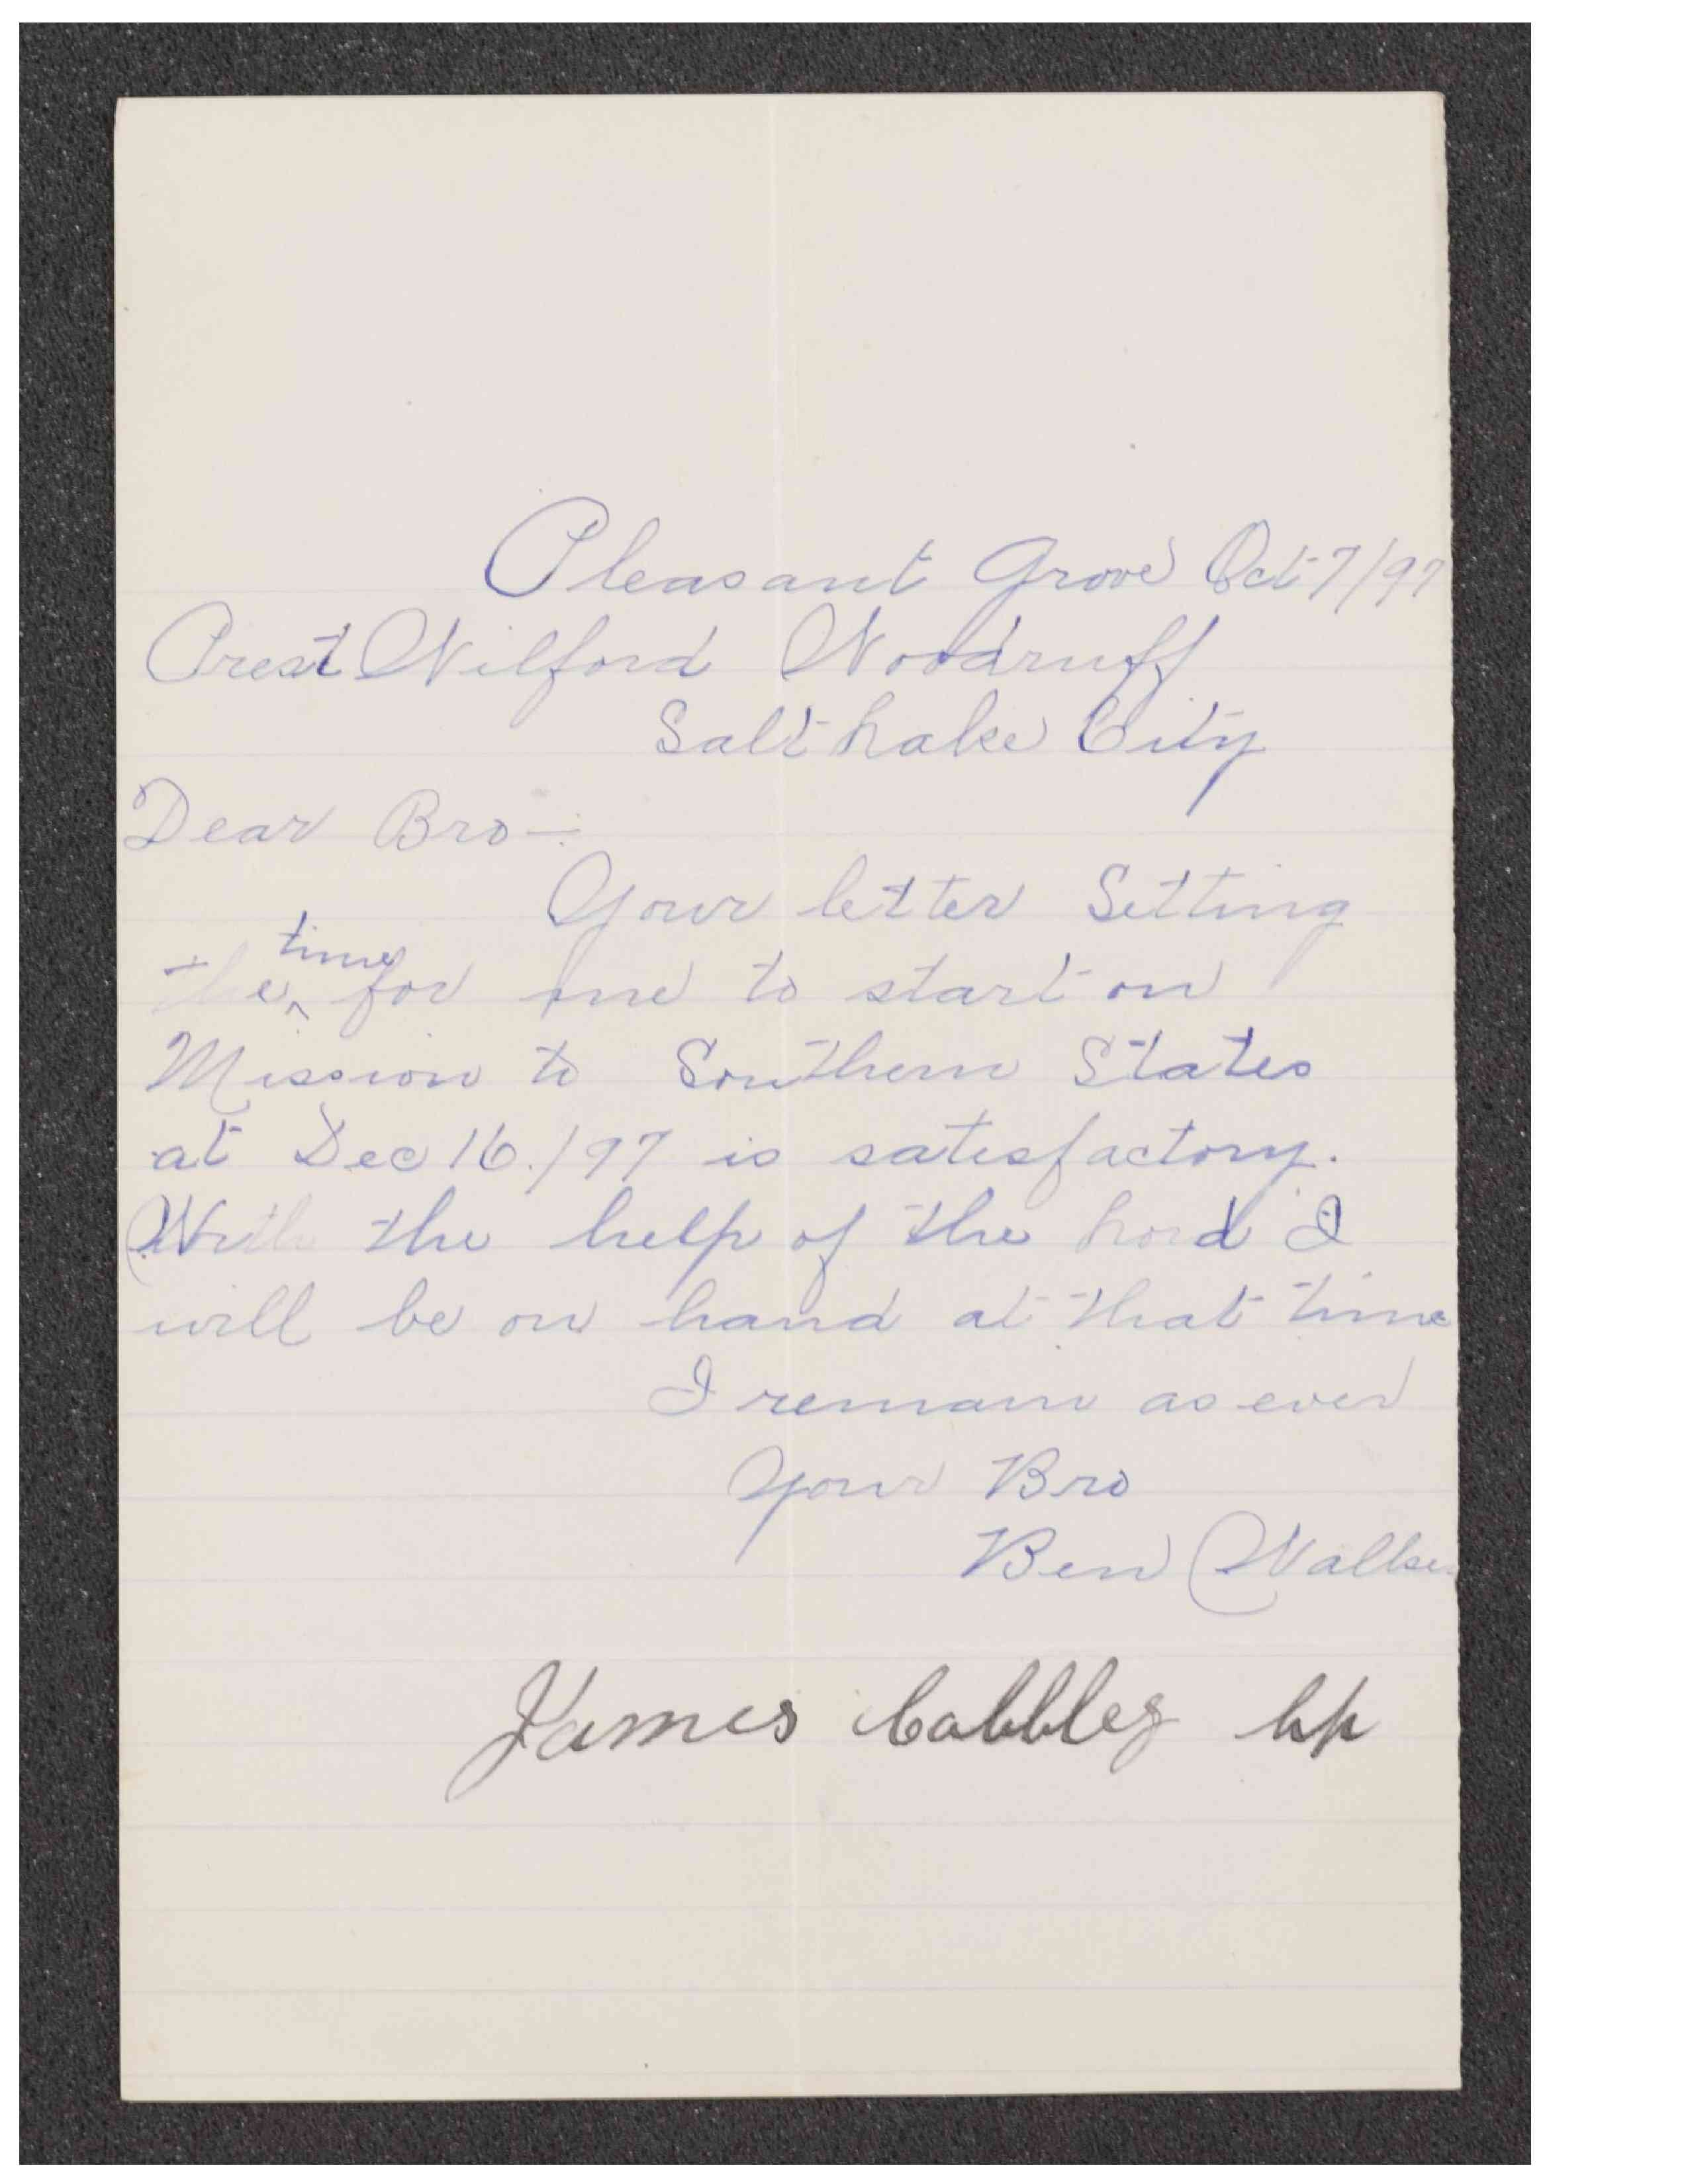 Pleasant Grove Oct 7/97
Prest Wilford Woodruff
Salt Lake City
Dear Bro—:
Your letter Setting
the ^time for me to start on
Mission to Southern States
at Dec 16./97 is satesfactory.
With the help of the Lord I
will be on hand at that time
I remain as ever
Your Bro
Ben Walker
James